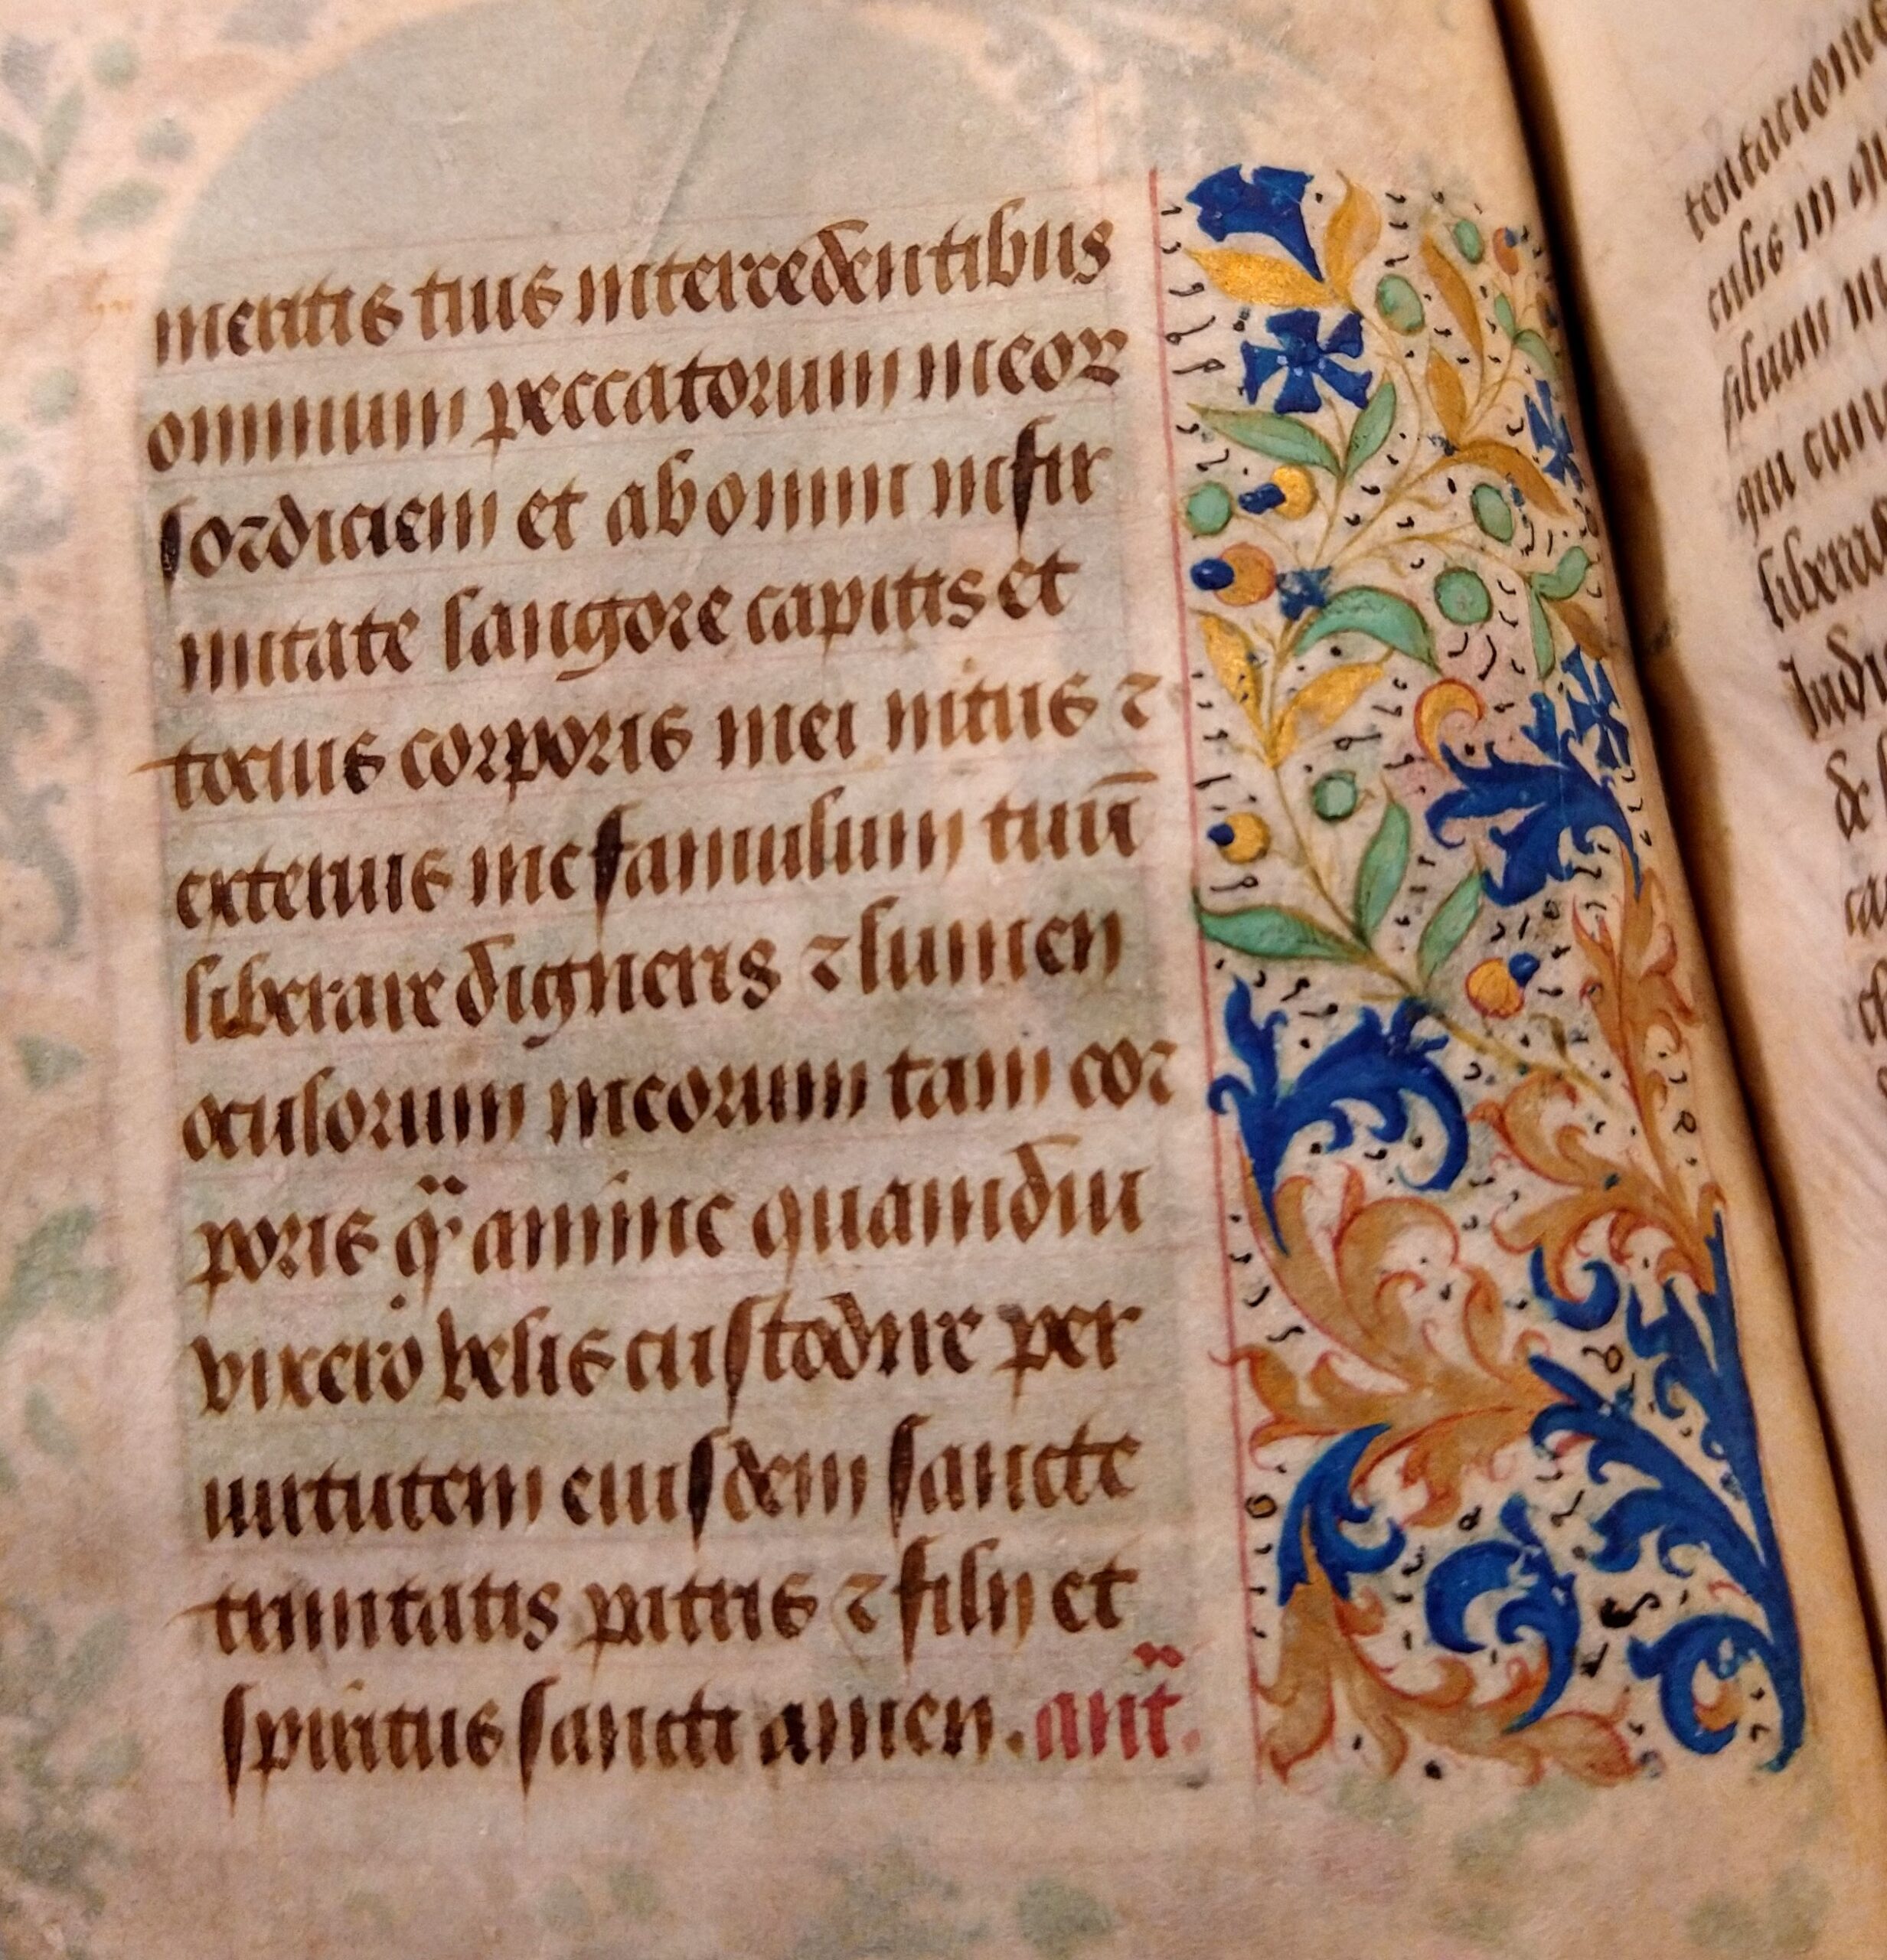 meritis tuis intercedentibus
omnium peccatorum meoꝝ
sordiciem et ab omni infir
mitate langore capitis et
tocius corporis mei intus ⁊
exterius me famulum tuū
liberare digneris ⁊ lumen
oculorum meorum tam cor
poris q̈ anime quamdiu
vixero velis custodire per
uirtutem eiusdem sancte
trinitatis patris ⁊ filij et
spiritus sancti amen. ant̃.
tentacione
culis in
filium
qui cum
liberas